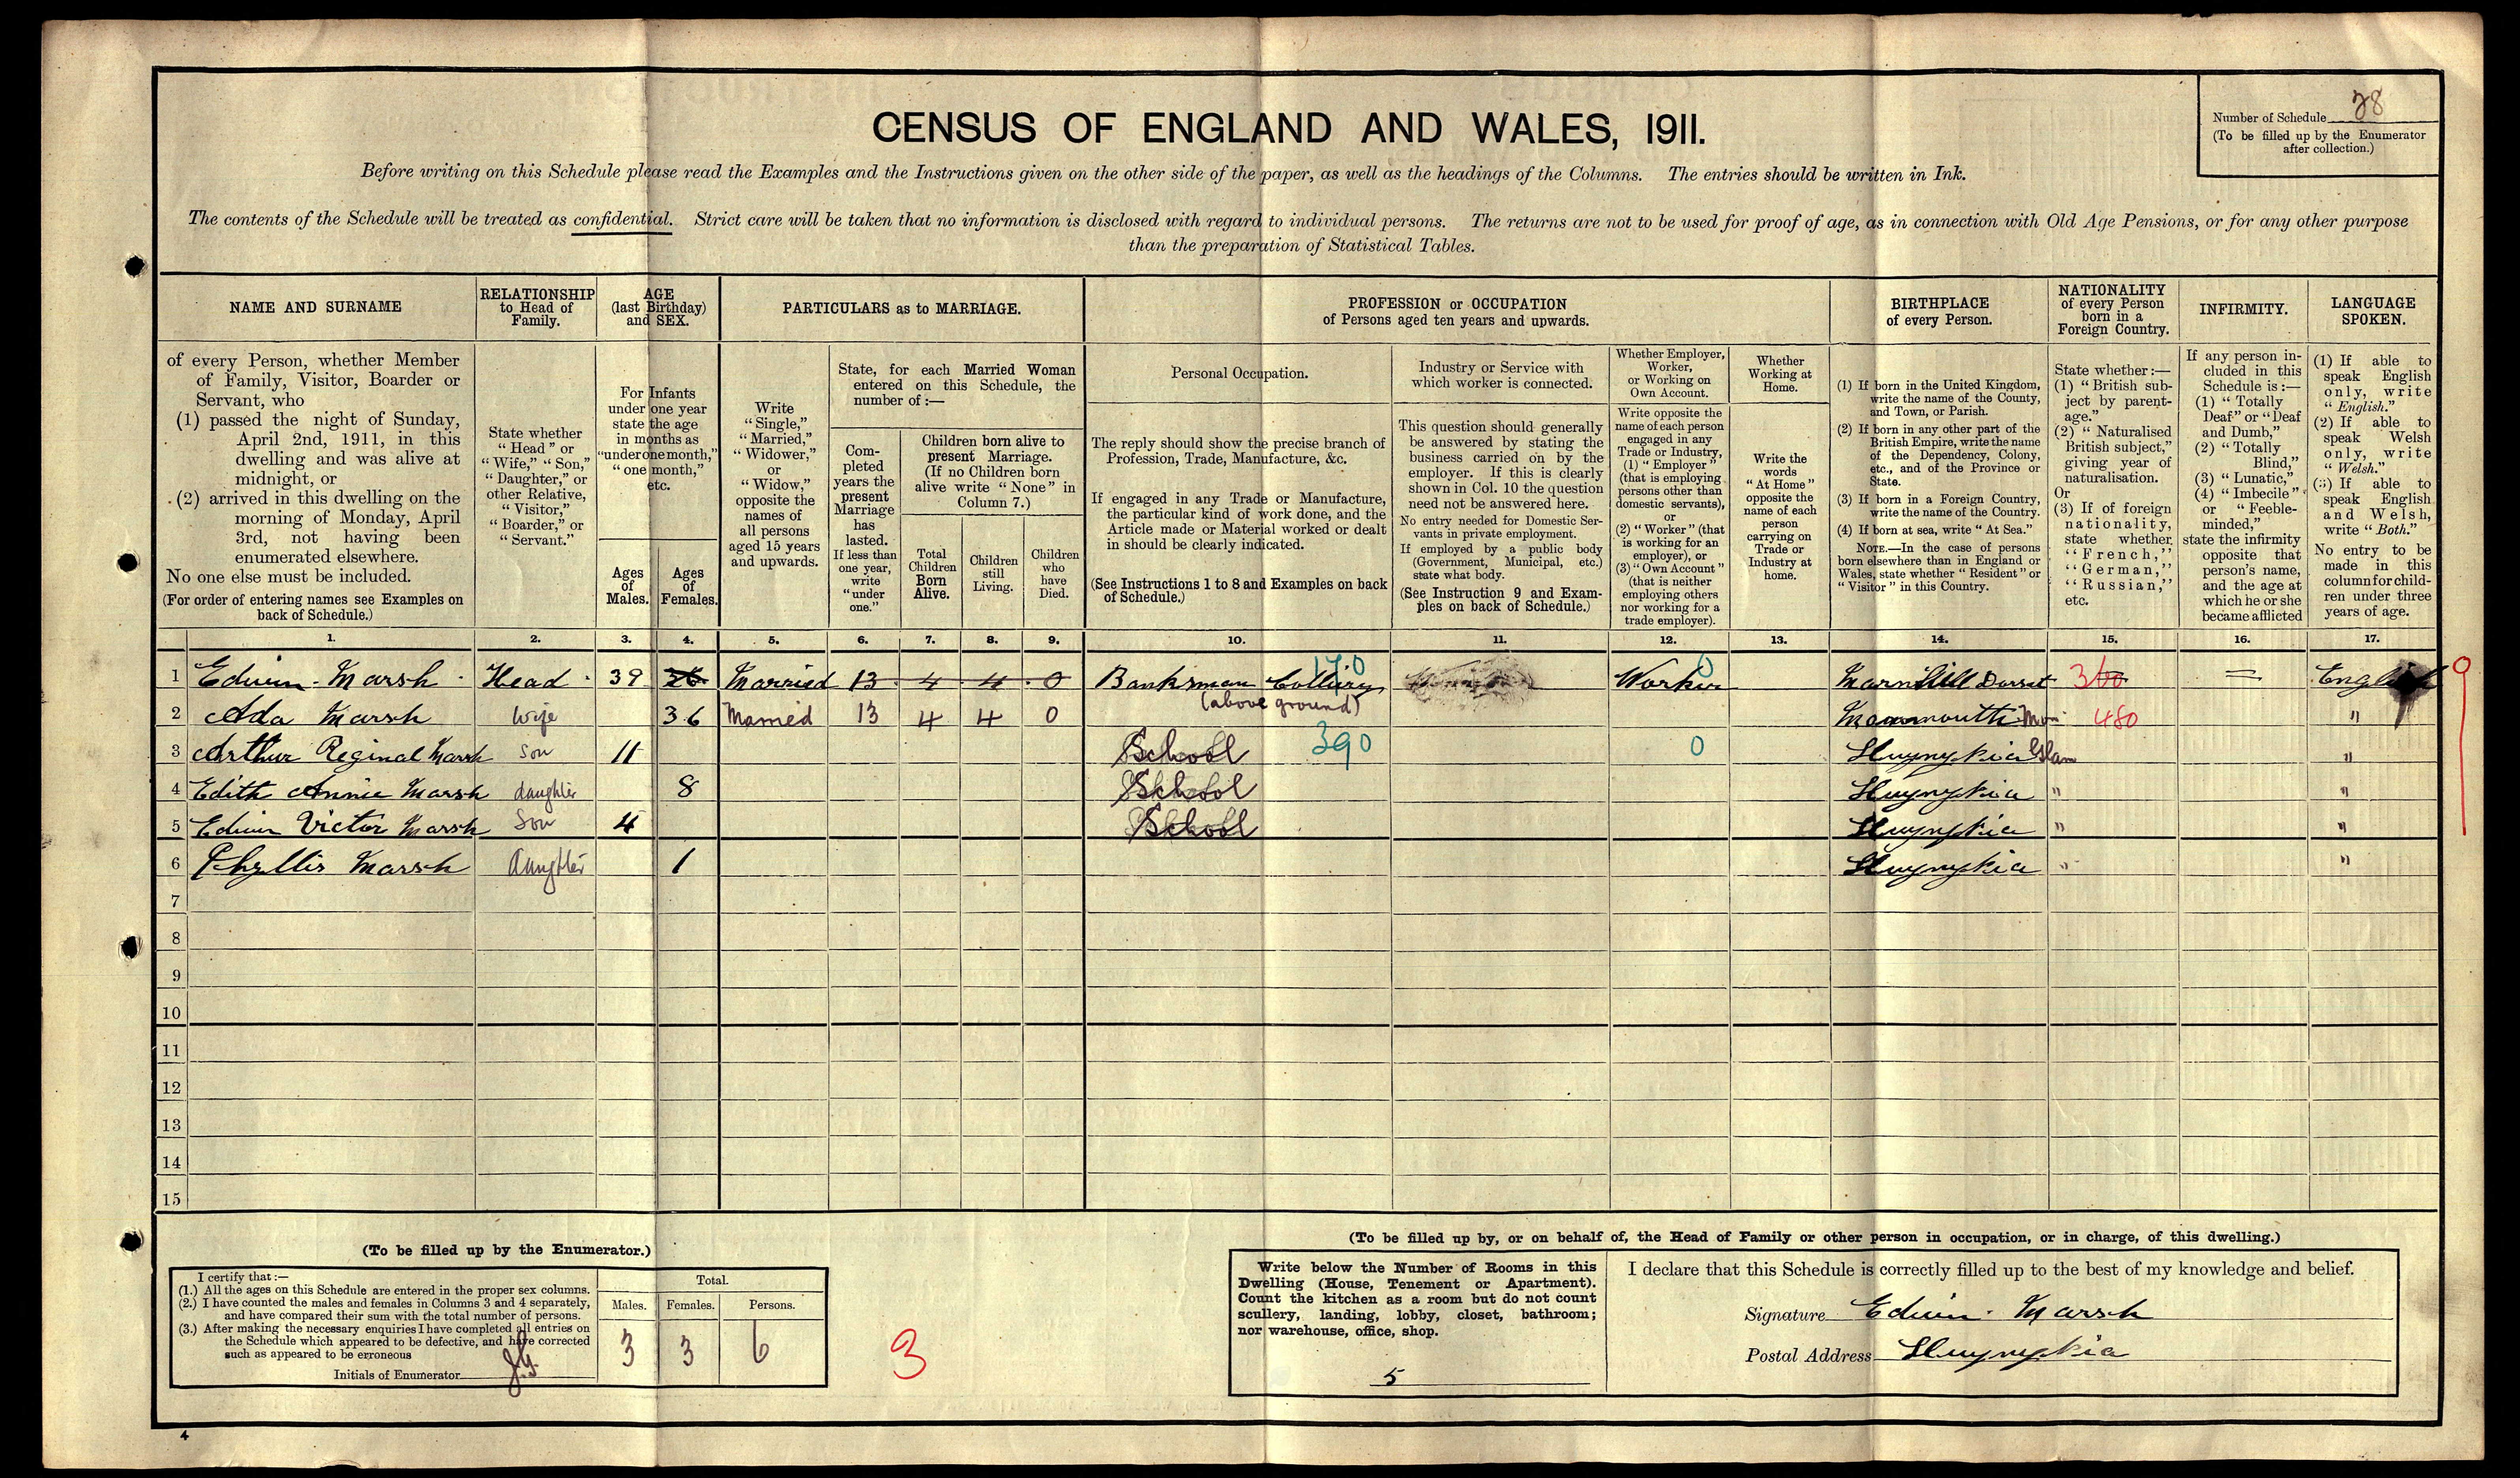 CENSUS OF ENGLAND AND WALES, 1911.
Number of Schedule 28
(To be filled up by the Enumerator
after collection.)
Before writing on this Schedule please read the Examples and the Instructions given on the other side of the paper, as well as the headings of the Columns. The entries should be written in Ink.
The contents of the Schedule will be treated as confidential. Strict care will be taken that no information is disclosed with regard to individual persons. The returns are not to be used for proof of age, as in connection with Old Age Pensions, or for any other purpose
than the preparation of Statistical Tables.
NAME AND SURNAME
of every Person, whether Member
of Family, Visitor, Boarder or
Servant, who
(1) passed the night of Sunday,
April 2nd, 1911, in this
dwelling and was alive at
midnight, or
(2) arrived in this dwelling on the
morning of Monday, April
3rd, not having been
enumerated elsewhere.
No one else must be included.
(For order of entering names see Examples on
back of Schedule.)
RELATIONSHIP
to Head of
Family.
State whether
"Head" or
"Wife," "Son,"
"Daughter," or
other Relative,
"Visitor,"
"Boarder," or
"Servant."
AGE
(last Birthday)
and SEX.
For Infants
under one year
state the age
in months as
"under one month,"
"one month,"
etc.
Ages
of
Males.
Ages
of
Females.
PARTICULARS as to MARRIAGE.
Write
"Single,"
"Married,"
"Widower,"
or
"Widow,"
opposite the
names of
all persons
aged 15 years
and upwards.
State, for each Married Woman
entered on this Schedule, the
number of:—
Com-
pleted
years the
present
Marriage
has
lasted.
If less than
one year,
write
"under
one."
Children born alive to
present Marriage.
(If no Children born
alive write "None" in
Column 7.)
Total
Children
Born
Alive.
Children
still
Living.
Children
who
have
Died.
PROFESSION or OCCUPATION
of Persons aged ten years and upwards.
Personal Occupation.
The reply should show the precise branch of
Profession, Trade, Manufacture, &c.
If engaged in any Trade or Manufacture,
the particular kind of work done, and the
Article made or Material worked or dealt
in should be clearly indicated.
(See Instructions 1 to 8 and Examples on back
of Schedule.)
Industry or Service with
which worker is connected.
This question should generally
be answered by stating the
business carried on by the
employer. If this is clearly
shown in Col. 10 the question
need not be answered here.
No entry needed for Domestic Ser-
vants in private employment.
If employed by a public body
(Government, Municipal, etc.)
state what body.
(See Instruction 9 and Exam-
ples on back of Schedule.)
Whether Employer,
Worker,
or Working on
Own Account.
Write opposite the
name of each person
engaged in any
Trade or Industry,
(1) "Employer"
(that is employing
persons other than
domestic servants),
or
(2) "Worker" (that
is working for an
employer), or
(3) "Own Account"
(that is neither
employing others
nor working for a
trade employer).
Whether
Working at
Home.
Write the
words
"At Home"
opposite the
name of each
person
carrying on
Trade or
Industry at
home.
BIRTHPLACE
of every Person.
(1) If born in the United Kingdom,
write the name of the County,
and Town, or Parish.
(2) If born in any other part of the
British Empire, write the name
of the Dependency, Colony,
etc., and of the Province or
State.
(3) If born in a Foreign Country,
write the name of the Country.
(4) If born at sea, write "At Sea."
NOTE.—In the case of persons
born elsewhere than in England or
Wales, state whether "Resident" or
"Visitor" in this Country.
NATIONALITY
of every Person
born in a
Foreign Country.
State whether:—
(1) "British sub-
ject by parent-
age."
(2) "Naturalised
British subject,"
giving year of
naturalisation.
Or
(3) If of foreign
nationality,
state whether
"French,"
"German,"
"Russian,"
etc.
INFIRMITY.
If any person in-
cluded in this
Schedule is:—
(1) "Totally
Deaf" or "Deaf
and Dumb,"
(2) "Totally
Blind,"
(3) "Lunatic,"
(4) "Imbecile"
or "Feeble-
minded,"
state the infirmity
opposite that
person's name,
and the age at
which he or she
became afflicted
LANGUAGE
SPOKEN.
(1) If able to
speak English
only, write
"English."
(2) If able to
speak Welsh
only, write
"Welsh."
(3) If able to
speak English
and Welsh,
write "Both."
No entry to be
made in this
column for child-
ren under three
years of age.
1. 2. 3. 4. 5. 6. 7. 8. 9. 10. 11. 12. 13. 14. 15. 16. 17.
1 Edwin Marsh Head 39 Married 13 4 4 0 Banksman Colliery 170 Worker 0 Marnhill Dorset 360 English
(above ground)
2 Ada Marsh Wife 36 Married 13 4 4 0 Monmouth Mon 480 "
3 Arthur Reginal Marsh Son 11 School 390 0 Llwynypia Glam "
4 Edith Annie Marsh daughter 8 School Llwynypia " "
5 Edwin Victor Marsh Son 4 School Llwynypia " "
6 Phyllis Marsh Daughter 1 Llwynypia " "
7
8
9
10
11
12
13
14
15
(To be filled up by the Enumerator.)
I certify that:—
(1.) All the ages on this Schedule are entered in the proper sex columns.
(2.) I have counted the males and females in Columns 3 and 4 separately,
and have compared their sum with the total number of persons.
(3.) After making the necessary enquiries I have completed all entries on
the Schedule which appeared to be defective, and have corrected
such as appeared to be erroneous
Initials of Enumerator
Total.
Males. Females. Persons.
3 3 6
3
(To be filled up by, or on behalf of, the Head of Family or other person in occupation, or in charge, of this dwelling.)
Write below the Number of Rooms in this
Dwelling (House, Tenement or Apartment).
Count the kitchen as a room but do not count
scullery, landing, lobby, closet, bathroom;
nor warehouse, office, shop.
5
I declare that this Schedule is correctly filled up to the best of my knowledge and belief.
Signature Edwin Marsh
Postal Address Llwynypia
4